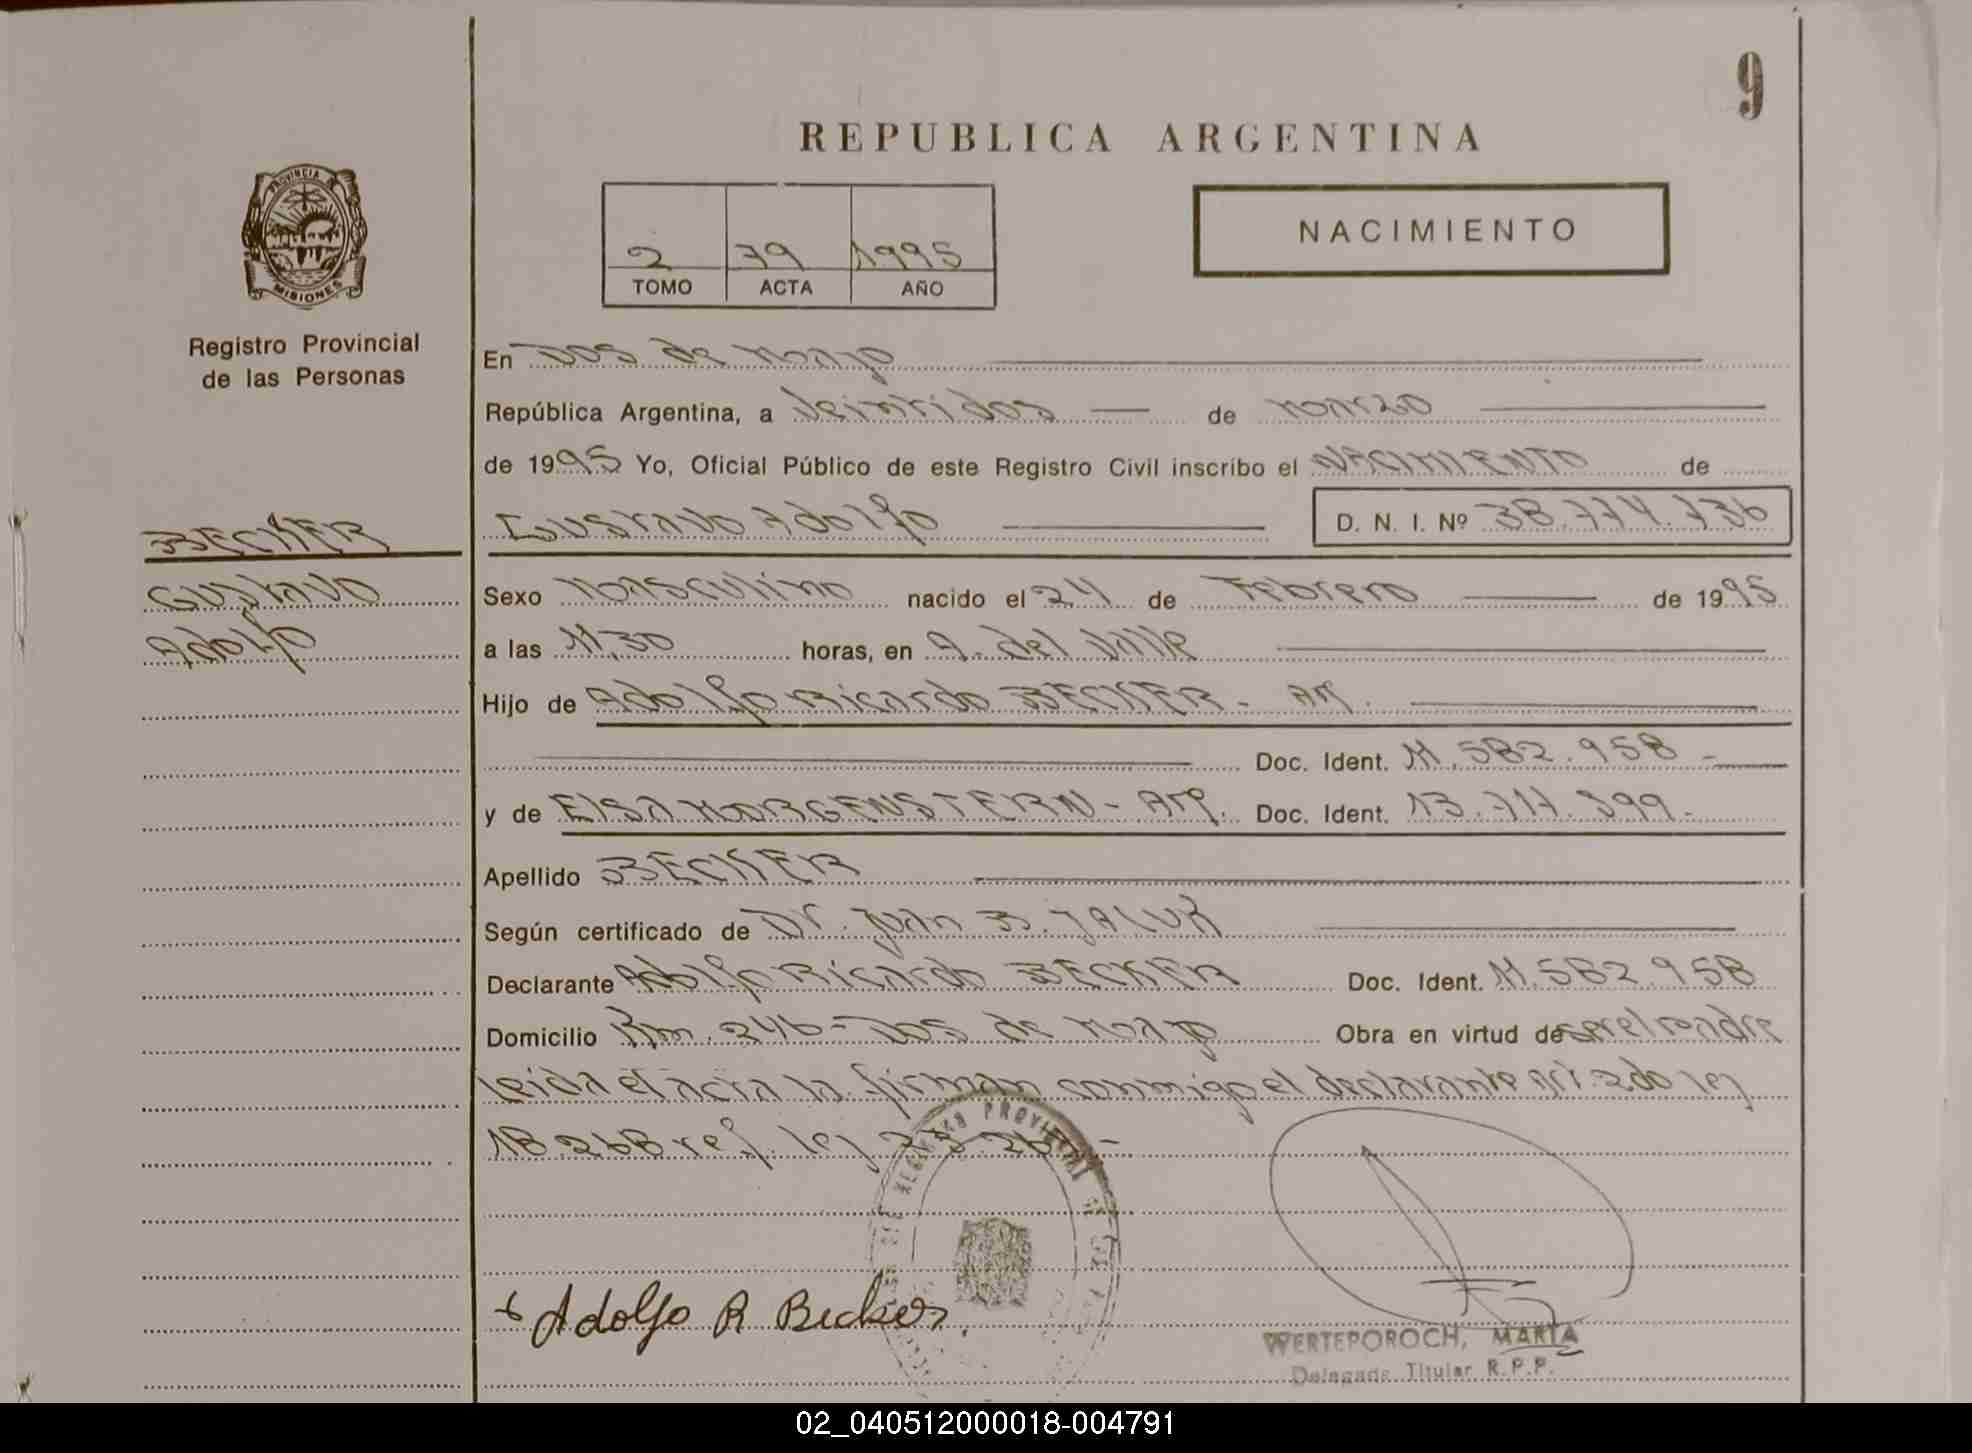 9
REPUBLICA ARGENTINA
PROVINCIA
MISIONES
Registro Provincial
de las Personas
2 79 1995
TOMO ACTA AÑO
NACIMIENTO
En Dos de Mayo
República Argentina, a veintidos de Marzo
de 1995 Yo, Oficial Público de este Registro Civil inscribo el NACIMIENTO de
BECKER
Gustavo Adolfo D. N. I. Nº 38.774.736
Gustavo
Adolfo
Sexo Masculino nacido el 24 de Febrero de 1995
a las 11,30 horas, en A. del Valle
Hijo de Adolfo Ricardo BECKER - Arg.
Doc. Ident. 11.582.958 -
y de Elsa MORGENSTERN - Arg. Doc. Ident. 13.717.399.-
Apellido BECKER
Según certificado de Dr. Juan B.
Declarante Adolfo Ricardo BECKER Doc. Ident. 11.582.958
Domicilio Km. 246 - Dos de Mayo Obra en virtud de ser el Padre
leida el acta la firman conmigo el declarante art. 2do ley
18.248 ref. ley
REGISTRO PROVINCIAL DE LAS
Adolfo R Becker.
WERTEPOROCH, MARTA
Delegada Titular R.P.P.
02_040512000018-004791